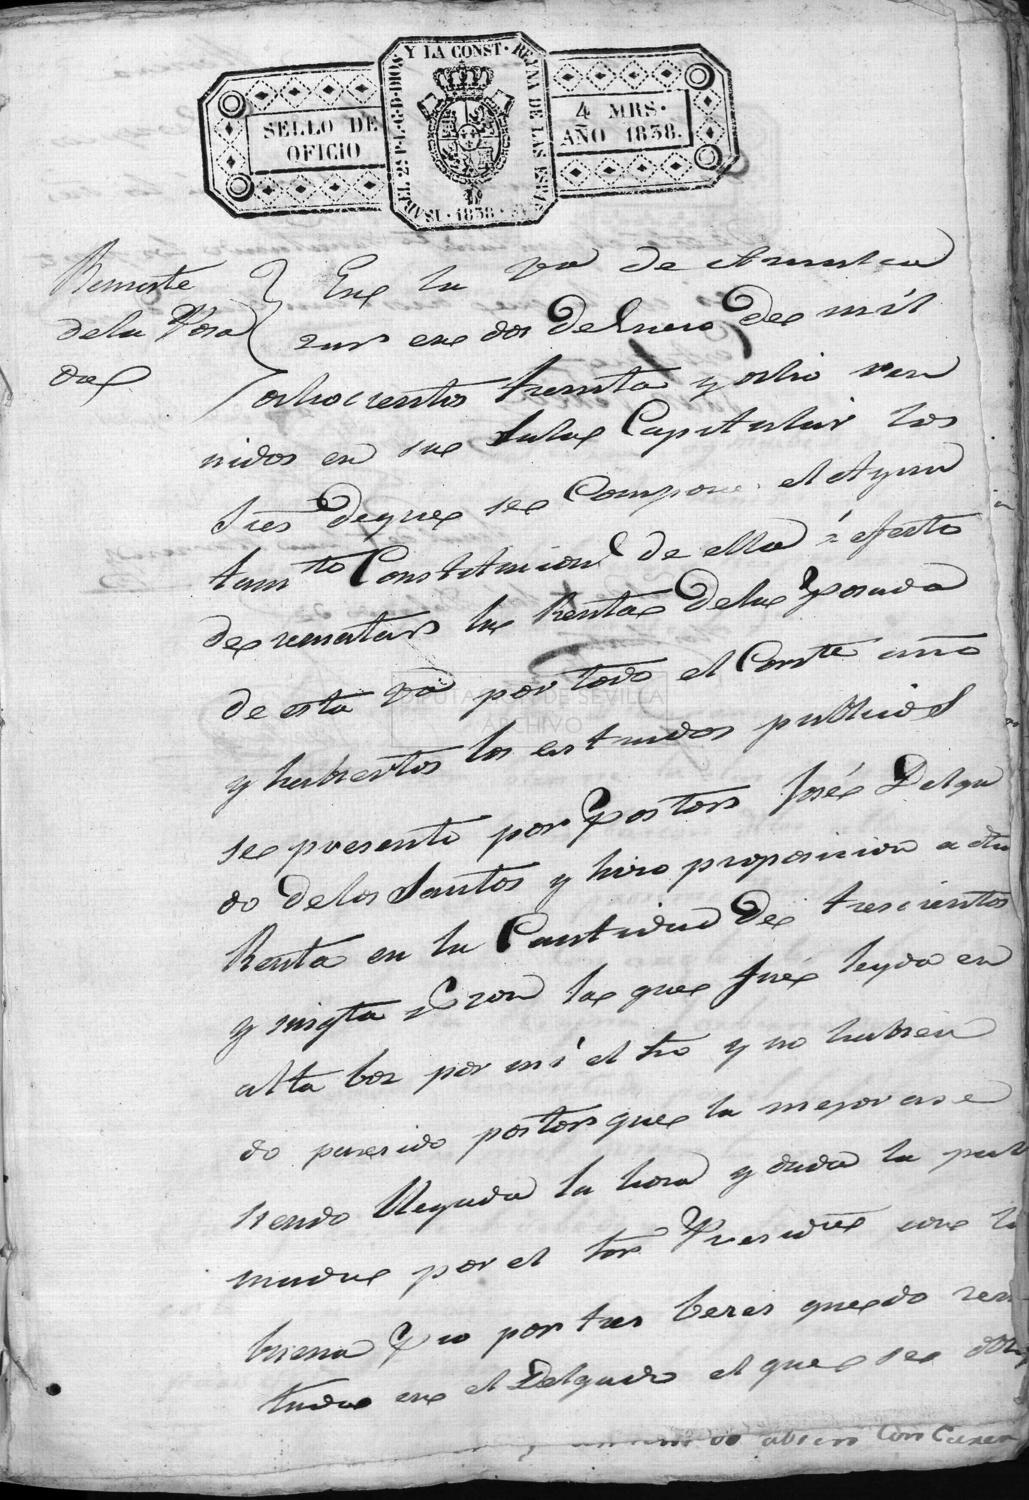 SELLO DE OFICIO
ISABEL 2ª P. L. G. D. DIOS Y LA CONST. REYNA DE LAS ESPAÑAS
· 1838 ·
4 MRS.
AÑO 1838.
Remate
dela Posa
da
En la va de
en dos de Enero de mil
ochocientos treinta y ocho reu
nidos en su sala Capitular los
Sres de que se Compone el Ayun
tamto Constitucional de ella á efecto
de rematar la Renta dela Posada
de esta va por todo el Corrte año
y habiertos los estrados publicos
se presentó por Postor José Delga
do delos Santos y hizo proposicion a dha
Renta en la Cantidad de trescientos
y la que fué leyda en
alta boz por mi el Srio y no habien
do parecido postor que la mejorase
siendo llegada la hora y dada la pal
mada por el Sor Presidte con la
buena Pro por tres beces quedo rem
tada en el Delgado el que se
DIPUTACIÓN DE SEVILLA
ARCHIVO